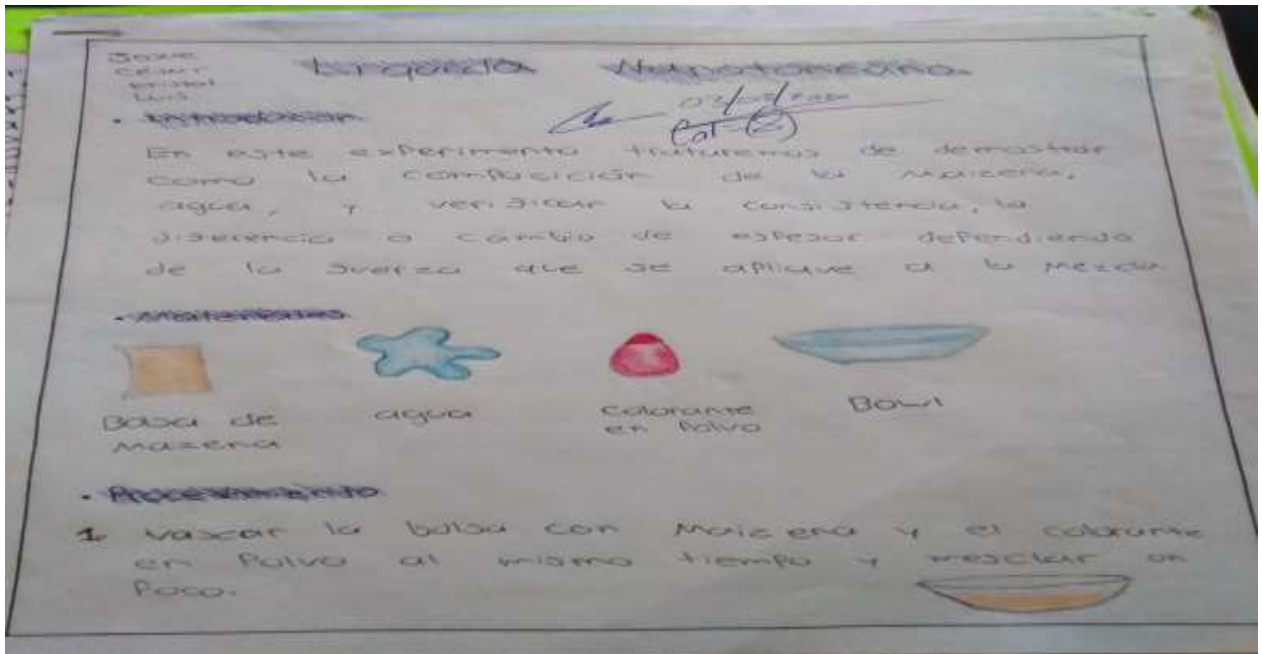 Cesar
Cristal
Luis
• Introduccion
En este experimento trataremos de demostrar
como la composición de la maizena,
agua, y verificar la consistencia, la
diferencia o cambio de espesor dependiendo
de la fuerza que se aplique a la mezcla
• Materiales
Bolsa de
mazena
agua
Colorante
en Polvo
Bowl
• Procedimiento
1 Vascar la bolsa con Maizena y el colorante
en Polvo al mismo tiempo y mesclar un
Poco.